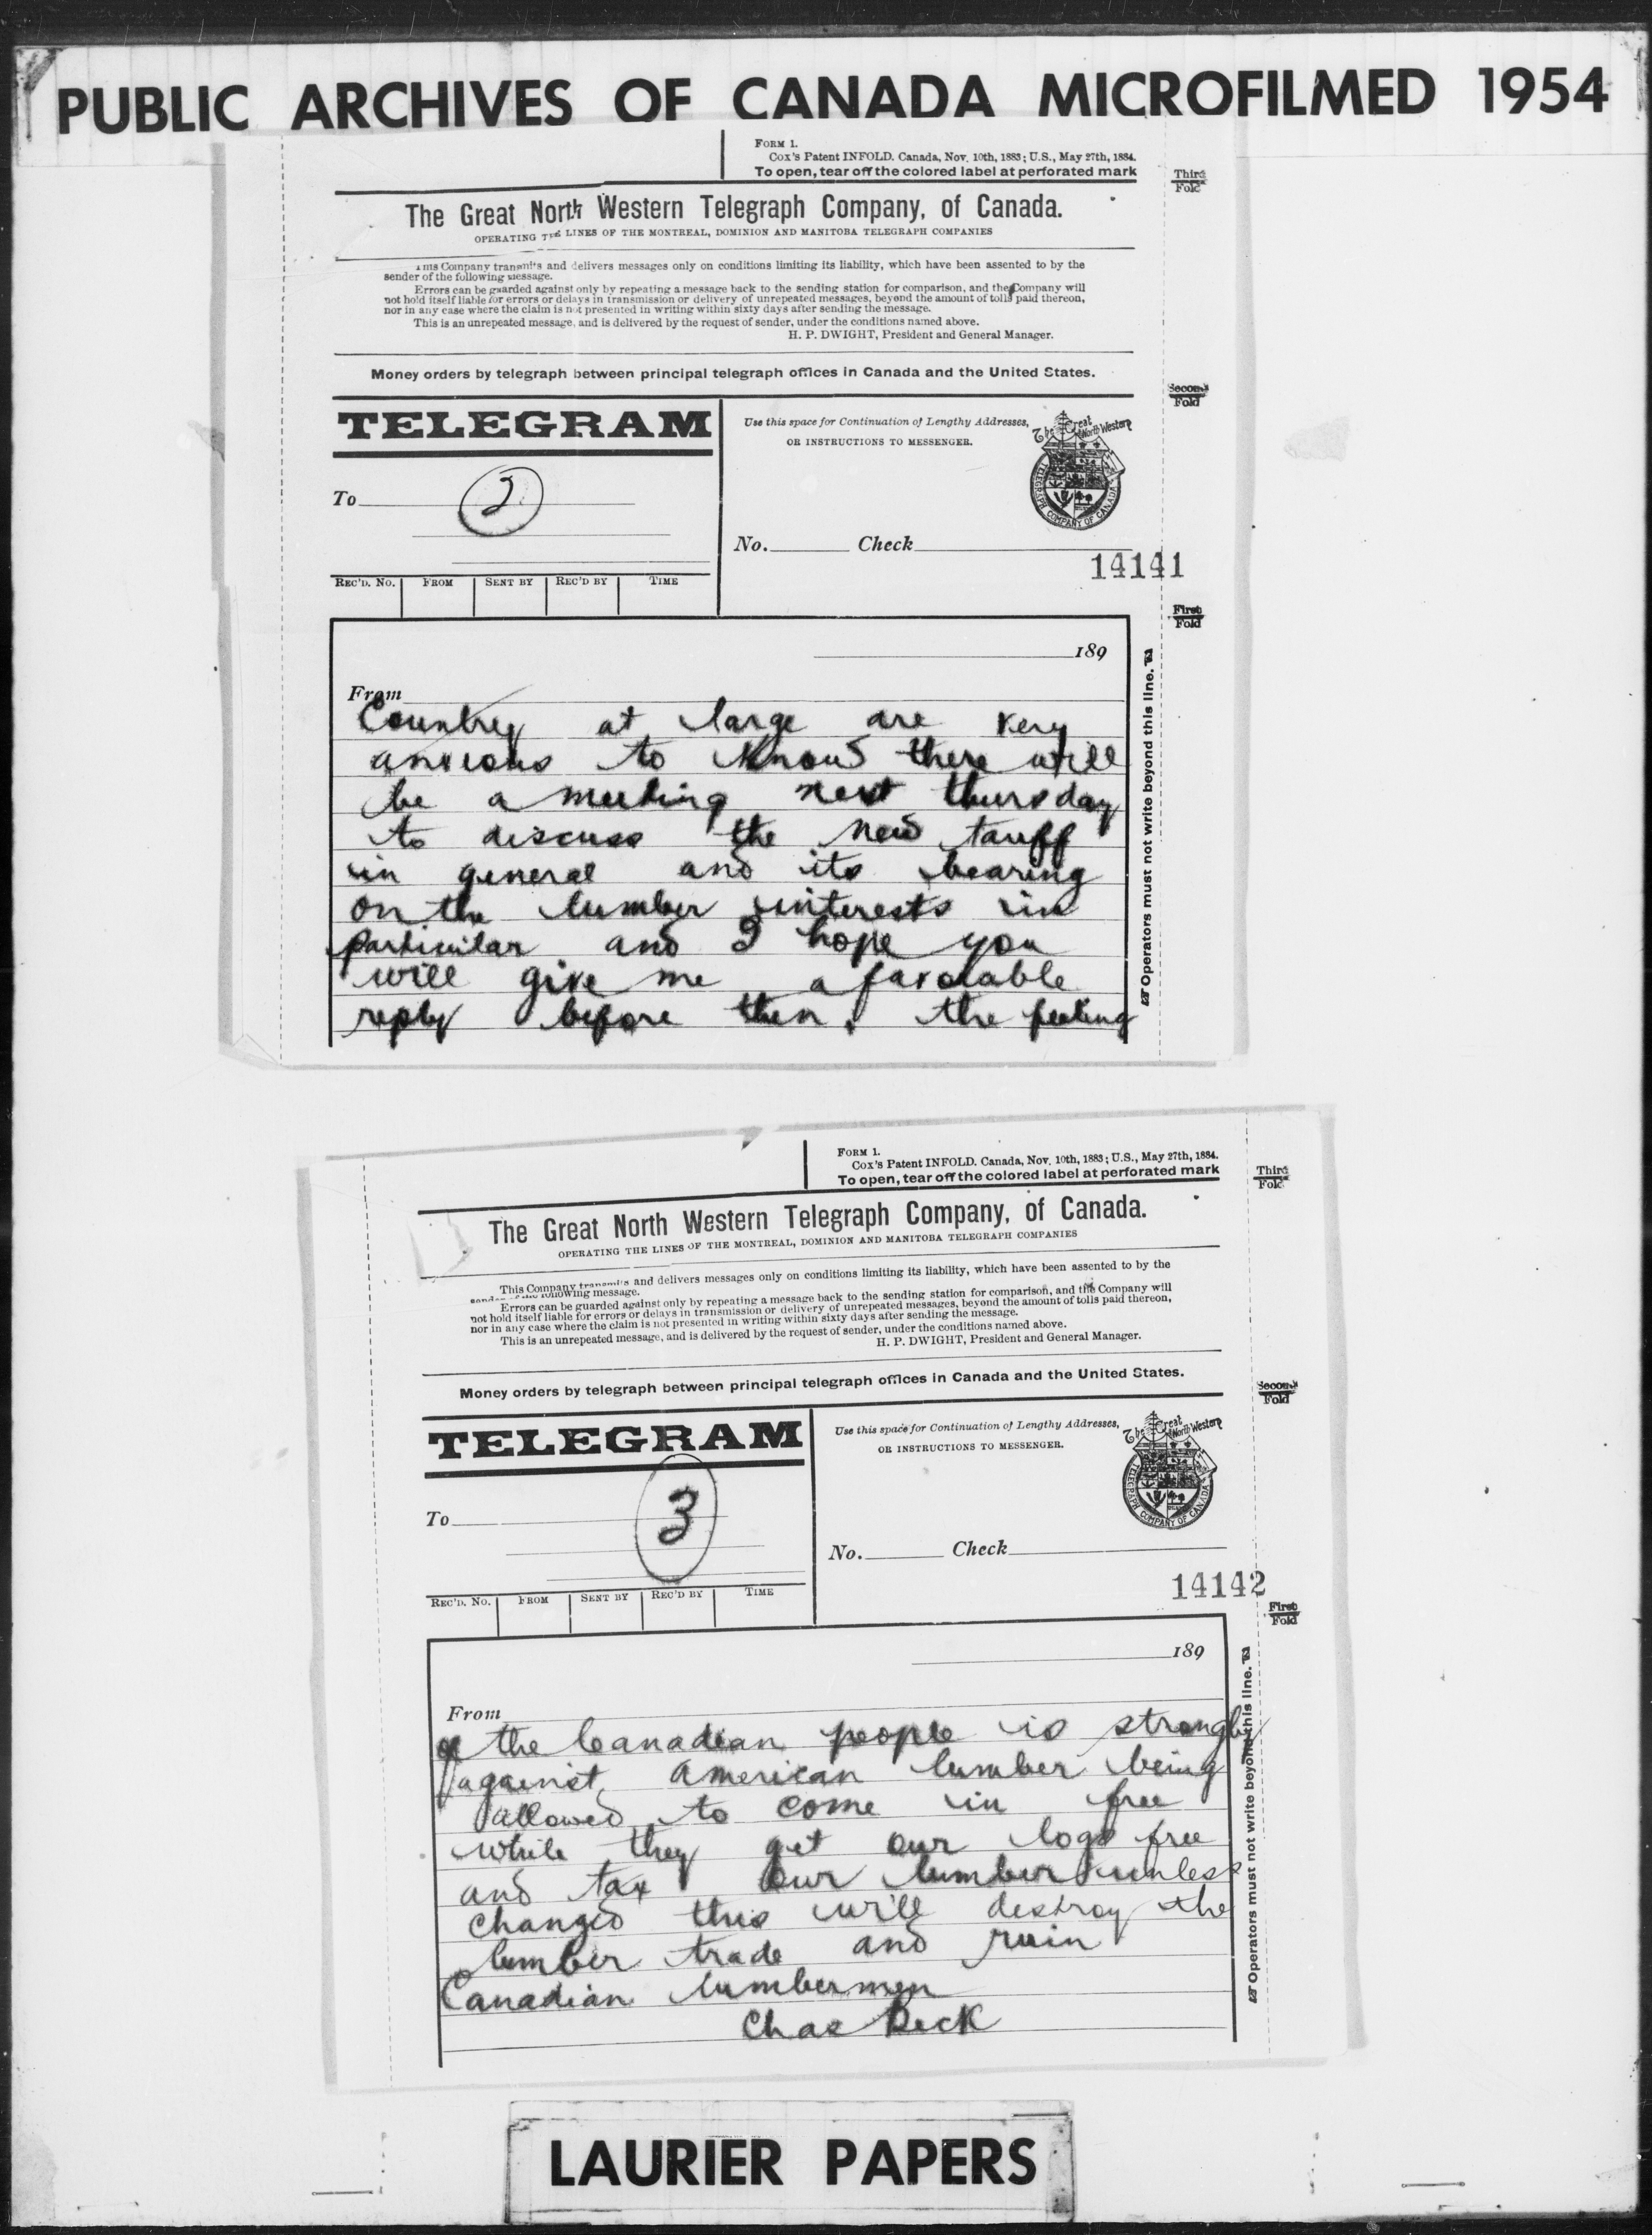 PUBLIC ARCHIVES OF CANADA MICROFILMED 1954
FORM 1.
Cox's Patent INFOLD. Canada, Nov. 10th, 1883; U.S., May 27th, 1884.
To open, tear off the colored label at perforated mark
Third
Fold
The Great North Western Telegraph Company, of Canada.
OPERATING THE LINES OF THE MONTREAL, DOMINION AND MANITOBA TELEGRAPH COMPANIES
This Company transmits and delivers messages only on conditions limiting its liability, which have been assented to by the
sender of the following message.
Errors can be guarded against only by repeating a message back to the sending station for comparison, and the Company will
not hold itself liable for errors or delays in transmission or delivery of unrepeated messages, beyond the amount of tolls paid thereon,
nor in any case where the claim is not presented in writing within sixty days after sending the message.
This is an unrepeated message, and is delivered by the request of sender, under the conditions named above.
H. P. DWIGHT, President and General Manager.
Money orders by telegraph between principal telegraph offices in Canada and the United States.
Second
Fold
TELEGRAM
Use this space for Continuation of Lengthy Addresses,
OR INSTRUCTIONS TO MESSENGER.
The Great North Western
TELEGRAPH COMPANY OF CANADA
To 2
No. Check
14141
REC'D. NO. FROM SENT BY REC'D BY TIME
First
Fold
189
From
Country at large are very
anxious to know there will
be a meeting next thursday
to discuss the new tariff
in general and its bearing
on the lumber interests in
particular and I hope you
will give me a favorable
reply before then. the feeling
Operators must not write beyond this line.
FORM 1.
Cox's Patent INFOLD. Canada, Nov. 10th, 1883; U.S., May 27th, 1884.
To open, tear off the colored label at perforated mark
Third
Fold
The Great North Western Telegraph Company, of Canada.
OPERATING THE LINES OF THE MONTREAL, DOMINION AND MANITOBA TELEGRAPH COMPANIES
This Company transmits and delivers messages only on conditions limiting its liability, which have been assented to by the
sender of the following message.
Errors can be guarded against only by repeating a message back to the sending station for comparison, and the Company will
not hold itself liable for errors or delays in transmission or delivery of unrepeated messages, beyond the amount of tolls paid thereon,
nor in any case where the claim is not presented in writing within sixty days after sending the message.
This is an unrepeated message, and is delivered by the request of sender, under the conditions named above.
H. P. DWIGHT, President and General Manager.
Money orders by telegraph between principal telegraph offices in Canada and the United States.
Second
Fold
TELEGRAM
Use this space for Continuation of Lengthy Addresses,
OR INSTRUCTIONS TO MESSENGER.
The Great North Western
TELEGRAPH COMPANY OF CANADA
To 3
No. Check
14142
REC'D. NO. FROM SENT BY REC'D BY TIME
First
Fold
189
From
of the Canadian people is strongly
against American lumber being
allowed to come in free
while they get our logs free
and tax our lumber unless
changed this will destroy the
lumber trade and ruin
Canadian lumbermen
Chas Beck
Operators must not write beyond this line.
LAURIER PAPERS